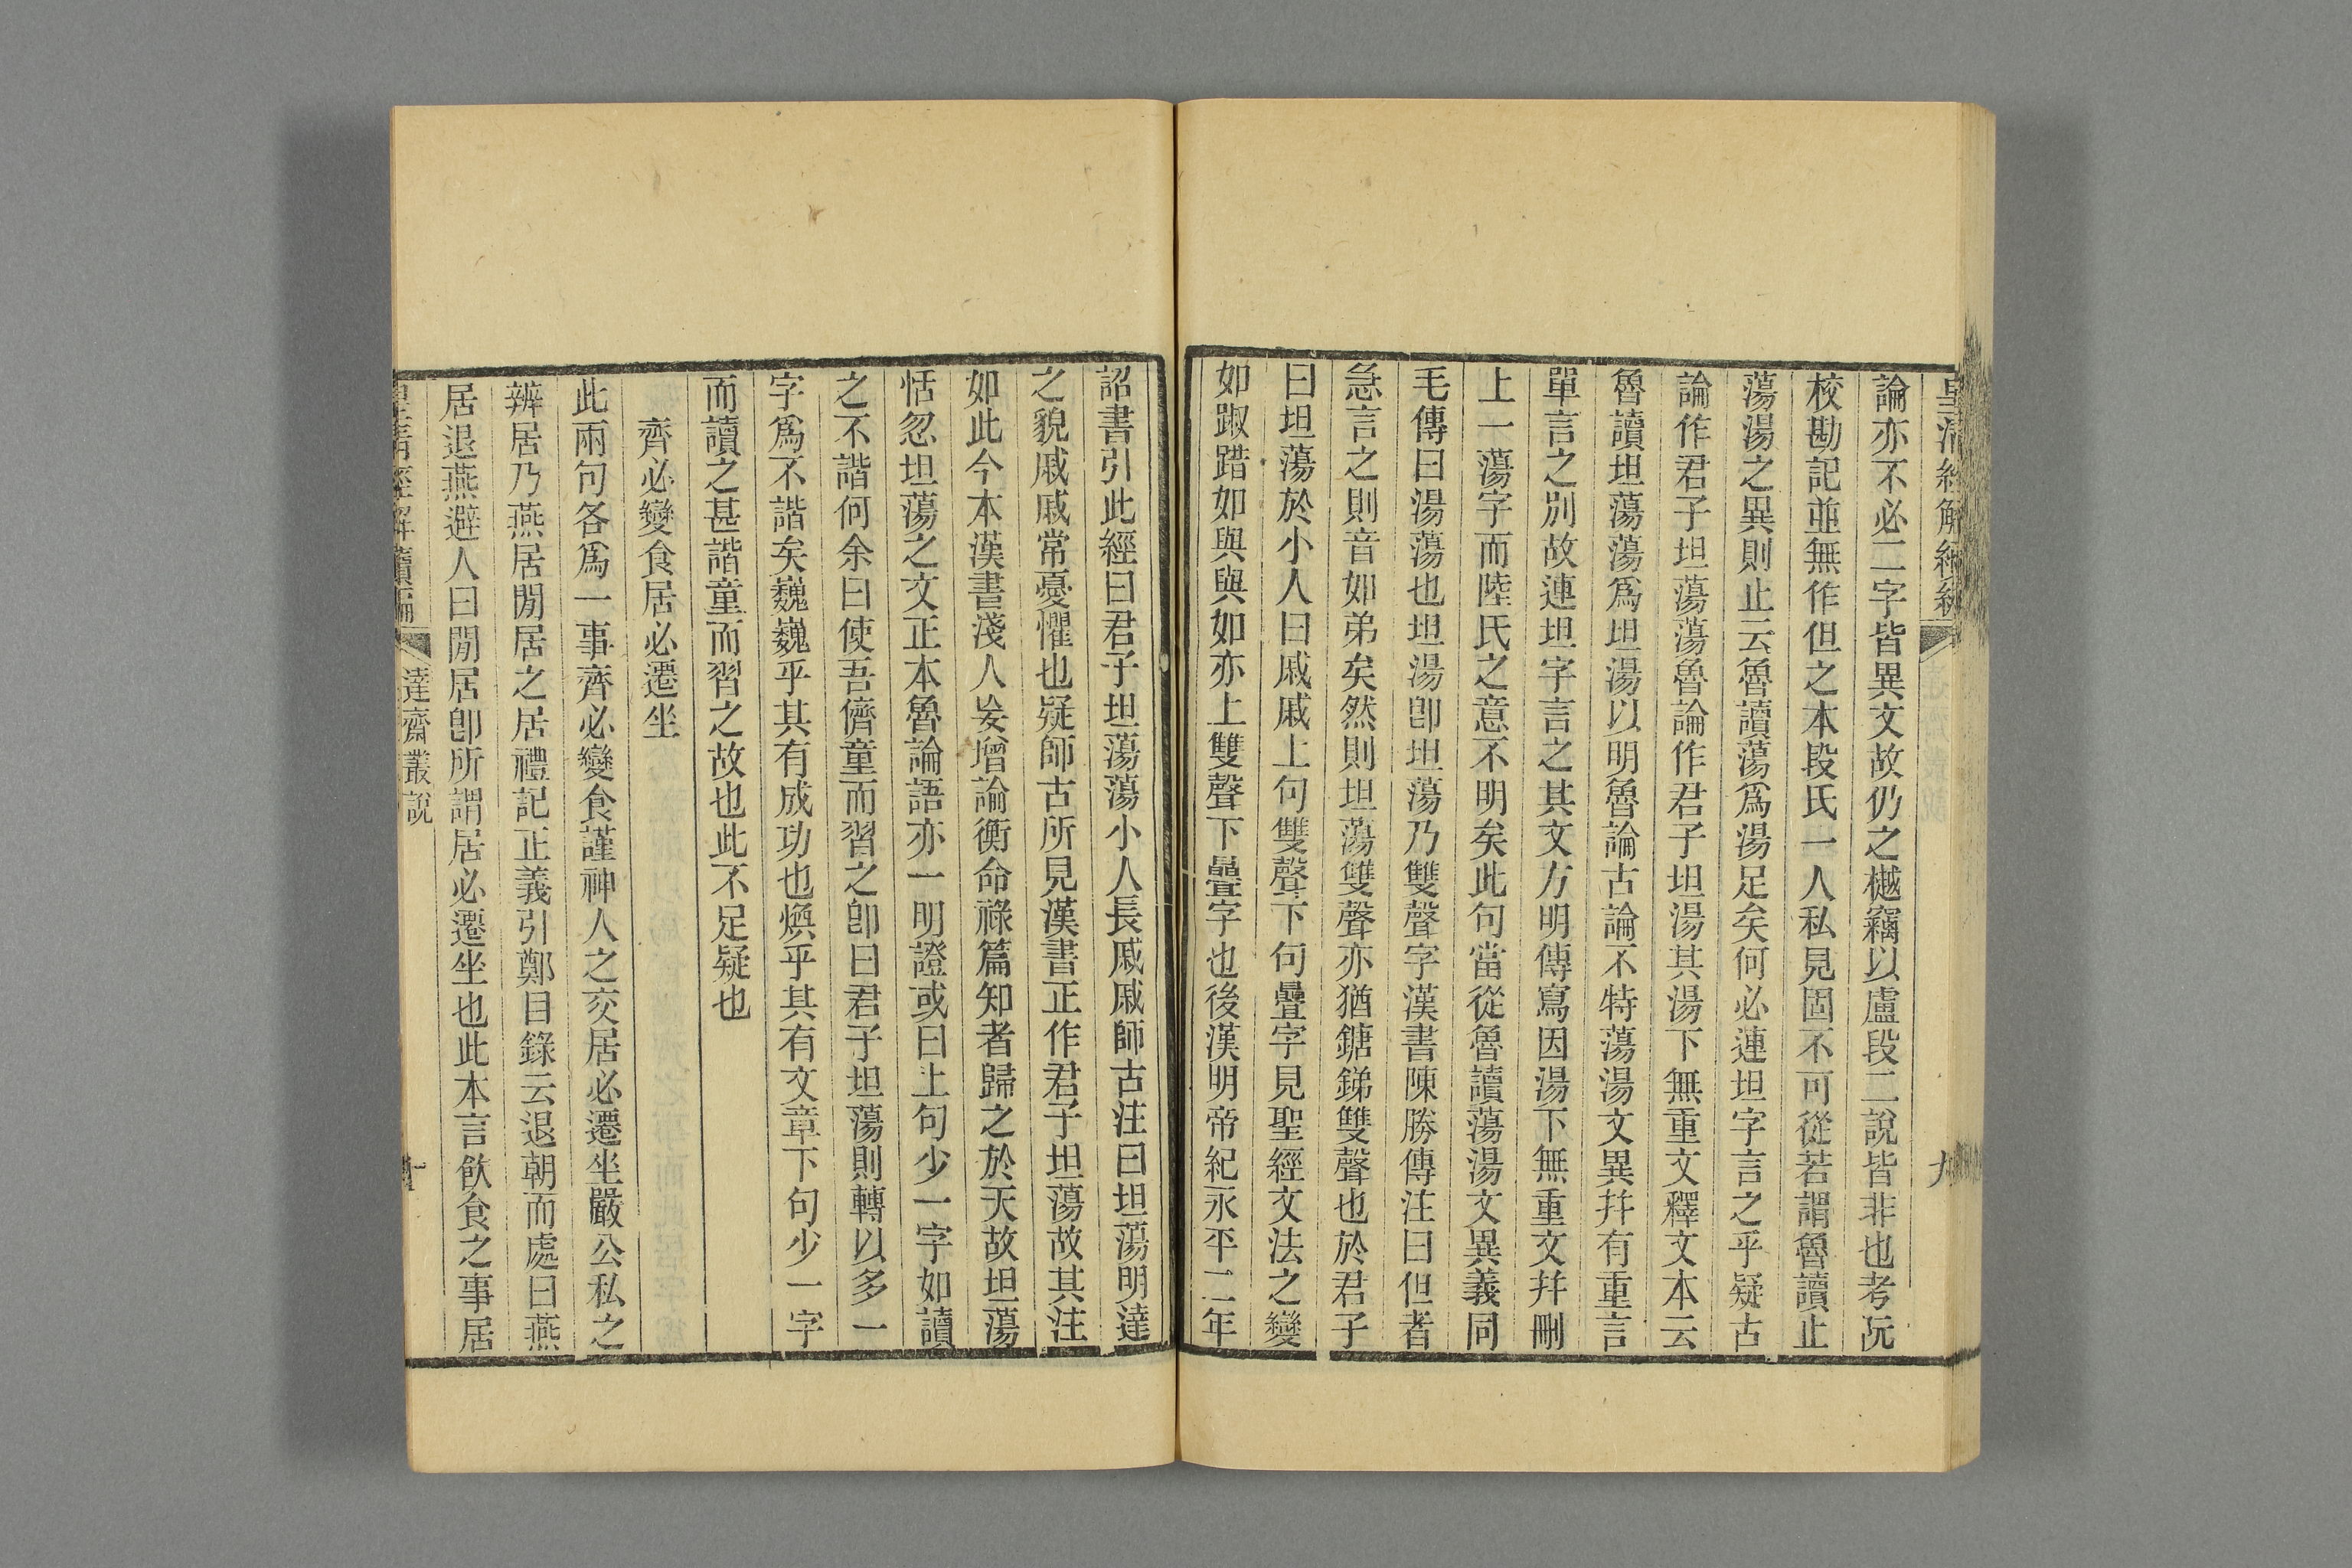 論亦不必二字皆異文故仍之樾竊以盧段二說皆非也考阮
校勘記並無作但之本段氏一人私見固不可從若謂魯讀止
蕩湯之異則止云魯讀蕩爲湯足矣何必連坦字言之乎疑古
論作君子坦蕩蕩魯論作君子坦湯其湯下無重文釋文本云
魯讀坦蕩蕩爲坦湯以明魯論古論不特蕩湯文異幷有重言
單言之別故連坦字言之其文方明傳寫因湯下無重文幷刪
上一蕩字而陸氏之意不明矣此句當從魯讀蕩湯文異義同
毛傳曰湯蕩也坦湯卽坦蕩乃雙聲字漢書陳勝傳注曰但者
急言之則音如弟矣然則坦蕩雙聲亦猶鎕銻雙聲也於君子
曰坦蕩於小人曰戚戚上句雙聲下句疊字見聖經文法之變
如踧踖如與與如亦上雙聲下疊字也後漢明帝紀永平二年
詔書引此經曰君子坦蕩蕩小人長戚戚師古注曰坦蕩明達
之貌戚戚常憂懼也疑師古所見漢書正作君子坦蕩故其注
如此今本漢書淺人妄增論衡命祿篇知者歸之於天故坦蕩
恬忽坦蕩之文正本魯論語亦一明證或曰上句少一字如讀
之不諧何余曰使吾儕童而習之卽曰君子坦蕩則轉以多一
字爲不諧矣巍巍乎其有成功也煥乎其有文章下句少一字
而讀之甚諧童而習之故也此不足疑也
齊必變食居必遷坐
此兩句各爲一事齊必變食謹神人之交居必遷坐嚴公私之
辨居乃燕居閒居之居禮記正義引鄭目錄云退朝而處曰燕
居退燕避人曰閒居卽所謂居必遷坐也此本言飲食之事居
皇清經解續編 達齋叢說 十